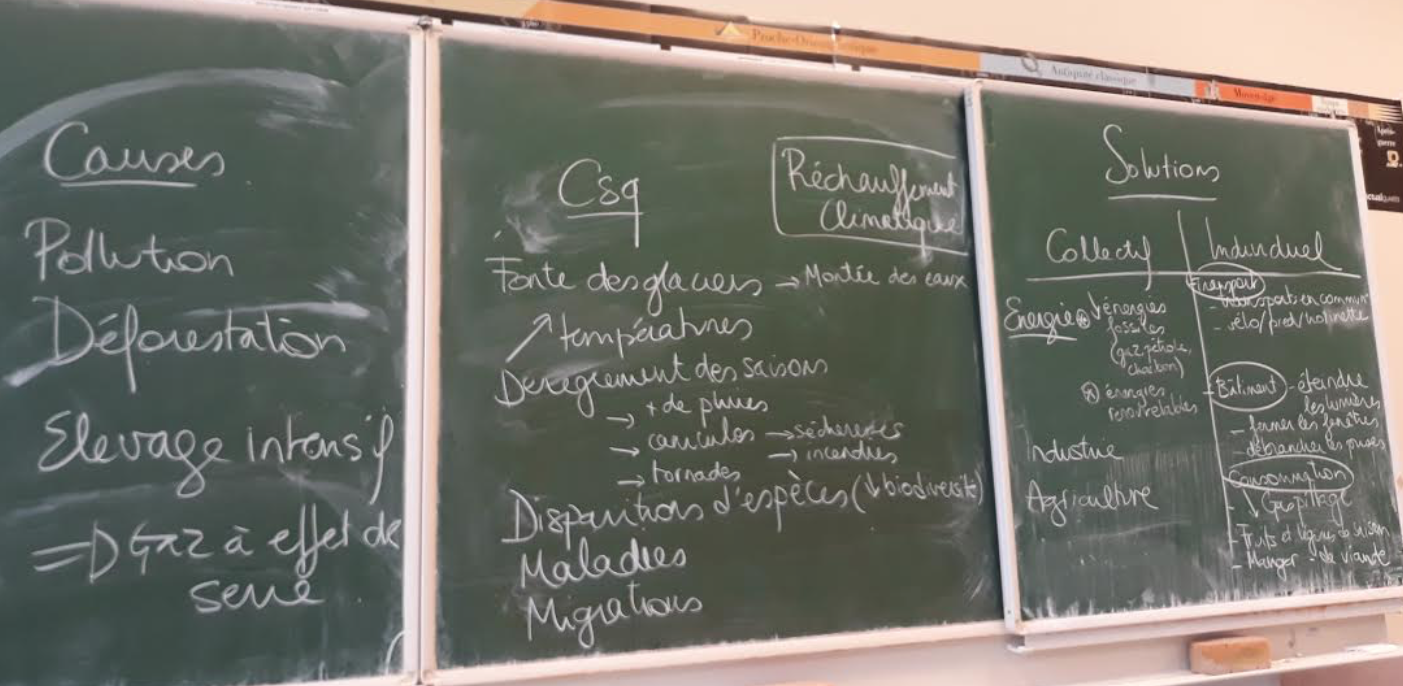 Proche-Orient antique
Antiquité classique
Moyen-âge
Causes
Pollution
Déforestation
Elevage intensif
=> Gaz à effet de
serre
Csq
Réchauffement
Climatique
Fonte des glaciers → Montée des eaux
↗ températures
Dérèglement des saisons
→ + de pluies
→ canicules → sécheresses
→ incendies
→ tornades
Disparitions d'espèces (↓ biodiversité)
Maladies
Migrations
Solutions
Collectif
Energie ⊕ ↓ énergies
fossiles
(gaz, pétrole,
charbon)
⊕ énergies
renouvelables
Industrie
Agriculture
Individuel
Transport
- transport en commun
- vélo/pied/trotinette
- Bâtiment - éteindre
les lumières
- fermer les fenêtres
- débrancher les prises
Consommation
- ↓ Gaspillage
- Fruits et légumes de saison
- Manger - de viande